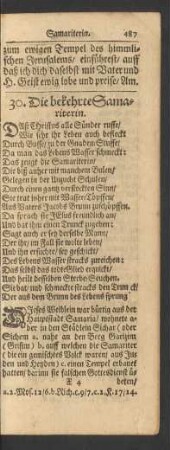 Samariterin. 487
zum ewigen Tempel des himmli-
schen Jerusalems/ einführest/ auff
daß ich dich daselbst mit Vater und
H. Geist ewig lobe und preise/ Am.
30. Die bekehrte Sama-
riterin.
DAß Christus alle Sünder ruffe/
Wie sehr ihr Leben auch befleckt
Durch Busse/ zu der Gnaden
Da man das Lebens Wasser schmeckt:
Das zeigt die Samariterin/
Die biß anher mit manchem Bulen/
Gelegen in der Unzucht Schulen/
Durch einen gantz verstockten Sinn/
Sie trat daher mit Wasser-Töpffen/
Aus Vaters Jacobs Brunn zuschöpffen.
Da sprach sie JEsus freundlich an/
Und bat ihn einen Trunck zugeben:
Sagt auch er sey derselbe Mann/
Der ihr/ im Fall sie wolte leben/
und ihn ersuchte/ sey geschickt/
Des Lebens Wasser stracks zureichen:
Das selbst das todte Glied erquickt/
Und heilt desselben Sterbe-Seuchen.
Sie bat/ und schmeckt stracks den Trunck/
Der aus dem Brunn des Lebens sprung
DIeses Weiblein war bürtig aus der
Hauptstadt Samaria/ wohnete a-
ber in den Städlein Sichar (oder
Sichem a. nahe an den Berg Garizim
(Grisim) b. auff welchen die Samariter
( die ein gemischtes Volck waren/ aus Jü-
den und Heyden) c. einen Tempel erbauet
hatten/ darinn sie falschen Gottesdienst ü-
4 beten/
a. 1. Mos. 12/6. b. Rich. c. 9/7. c. 2. K. 17/24.